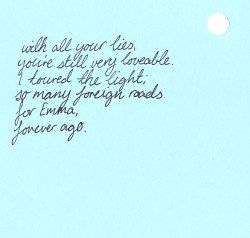 with all your lies,
you're still very loveable.
I toured the light;
so many foreign roads.
for Emma,
forever ago.